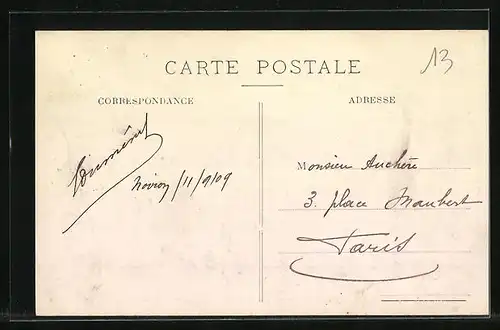 13
CARTE POSTALE
CORRESPONDANCE
ADRESSE
Duménil
Novion/11/9/09
Monsieu Auchère
3. place Maubert
Paris